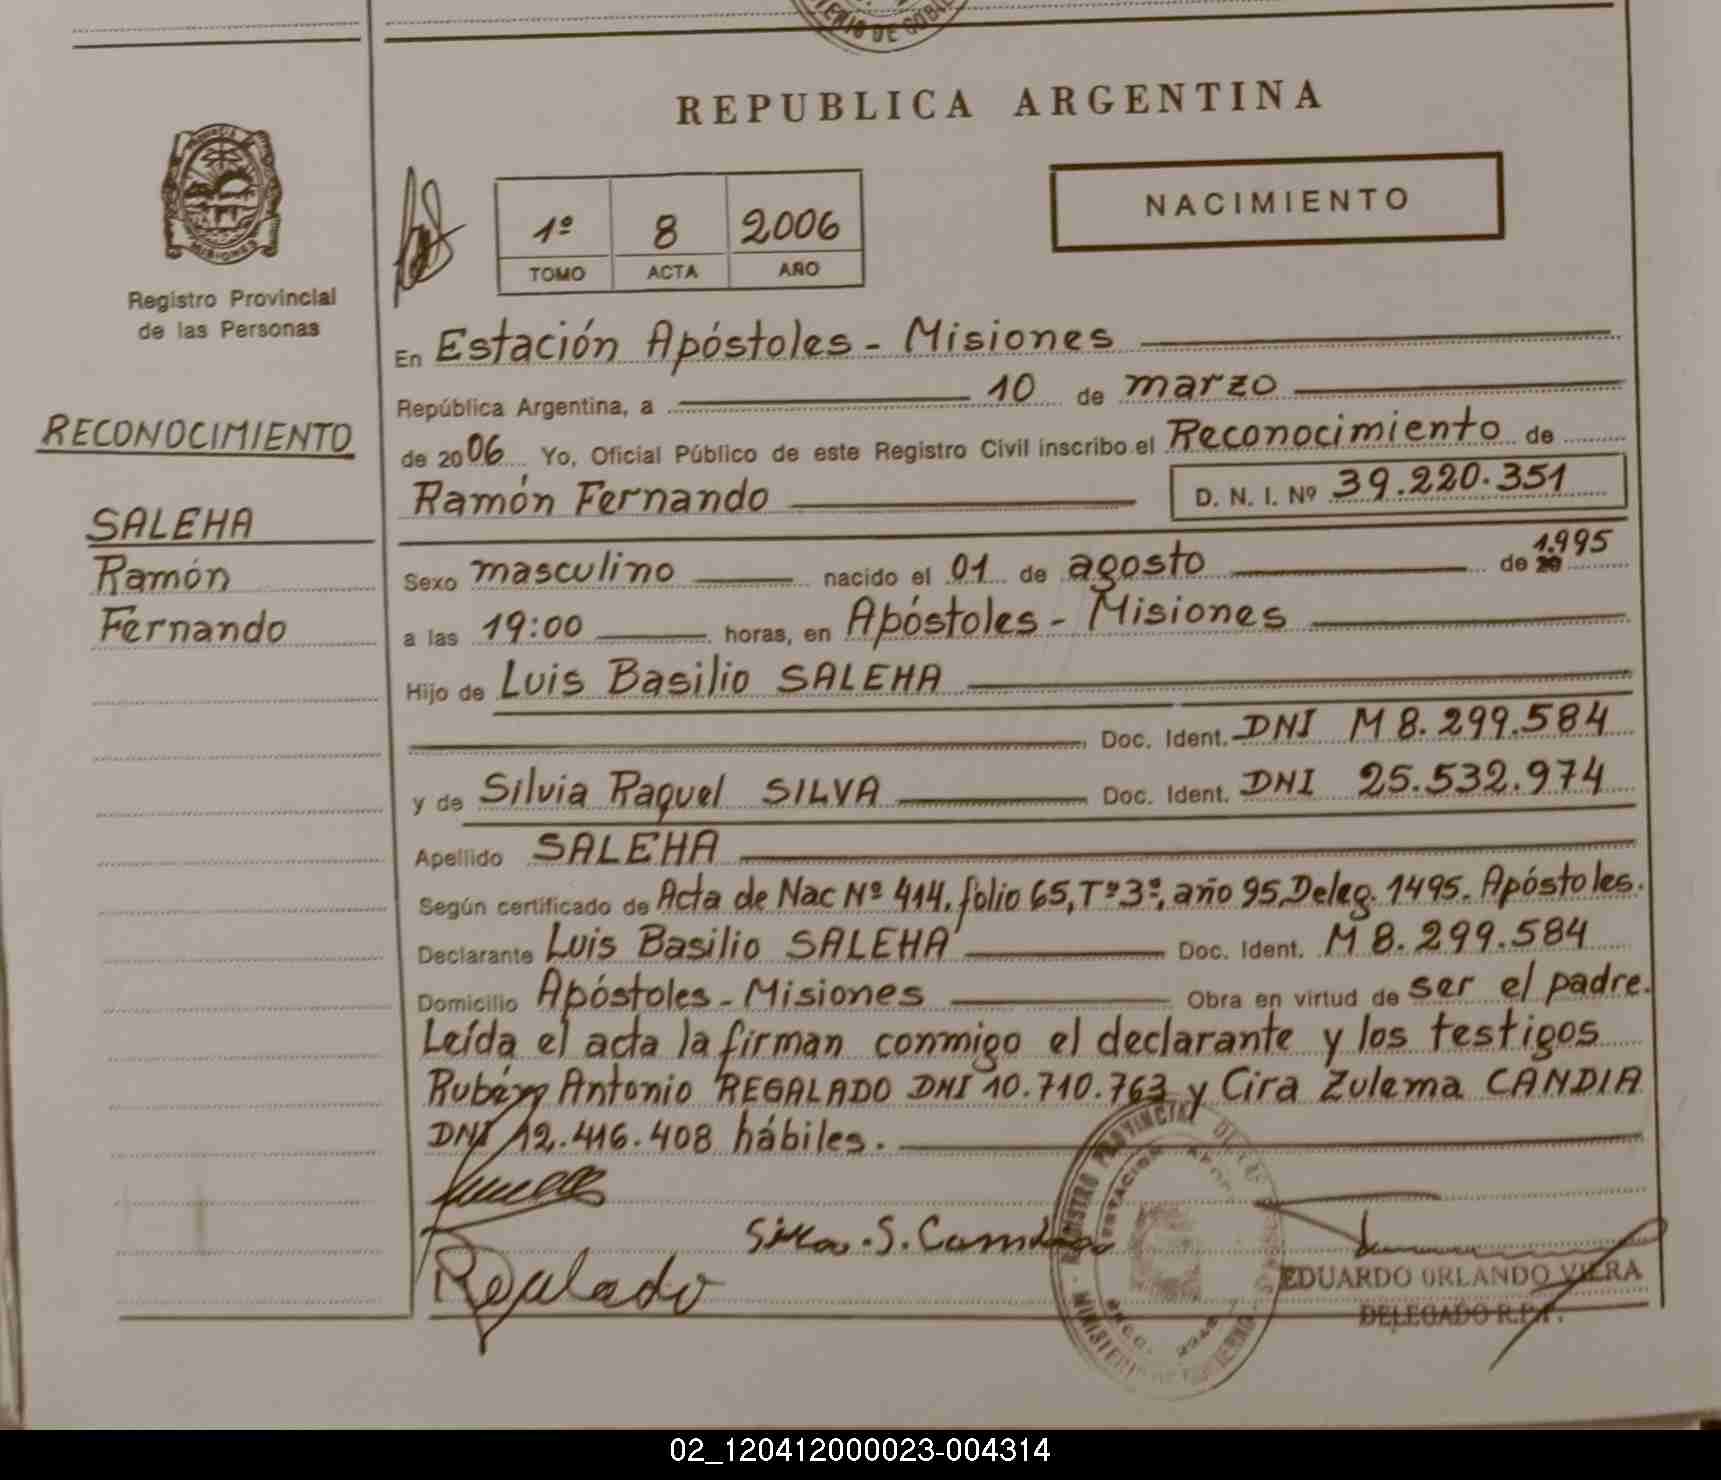 TERIO DE GOBIE
REPUBLICA ARGENTINA
PROVINCIA
MISIONES
Registro Provincial
de las Personas
1º 8 2006
TOMO ACTA AÑO
NACIMIENTO
RECONOCIMIENTO
SALEHA
Ramón
Fernando
En Estación Apóstoles - Misiones
República Argentina, a 10 de marzo
de 2006 Yo, Oficial Público de este Registro Civil inscribo el Reconocimiento de
Ramón Fernando D. N. I. Nº 39.220.351
Sexo masculino nacido el 01 de agosto de 20 1.995
a las 19:00 horas, en Apóstoles - Misiones
Hijo de Luis Basilio SALEHA
Doc. Ident. DNI M 8.299.584
y de Silvia Raquel SILVA Doc. Ident. DNI 25.532.974
Apellido SALEHA
Según certificado de Acta de Nac Nº 414, folio 65, Tº 3º, año 95, Deleg. 1495. Apóstoles.
Declarante Luis Basilio SALEHA Doc. Ident. M 8.299.584
Domicilio Apóstoles - Misiones Obra en virtud de ser el padre.
Leída el acta la firman conmigo el declarante y los testigos
Rubén Antonio REGALADO DNI 10.710.763 y Cira Zulema CANDIA
DNI 12.416.408 hábiles.
Regalado
REGISTRO PROVINCIAL DE LAS
ESTACION APOST
MINISTERIO DE GOBIERNO
EDUARDO ORLANDO VIERA
DELEGADO R.P.P.
02_120412000023-004314